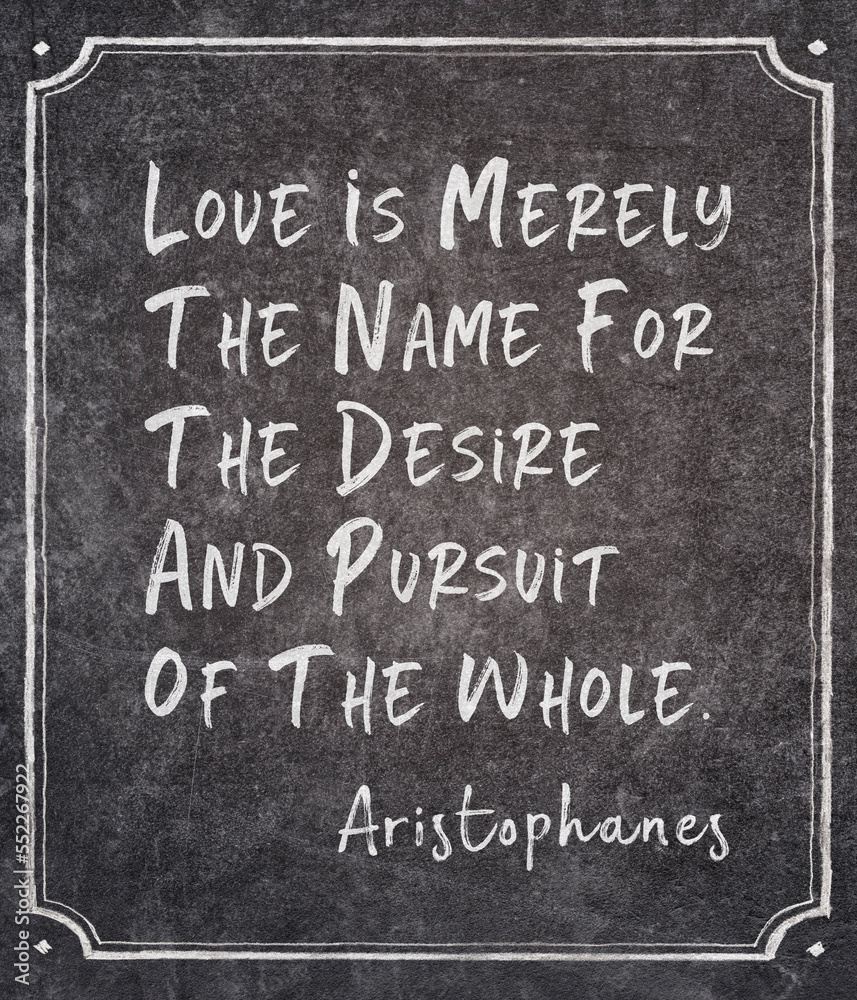 Love is Merely
The Name For
The Desire
And Pursuit
Of The Whole.
Aristophanes
Adobe Stock | #552267922